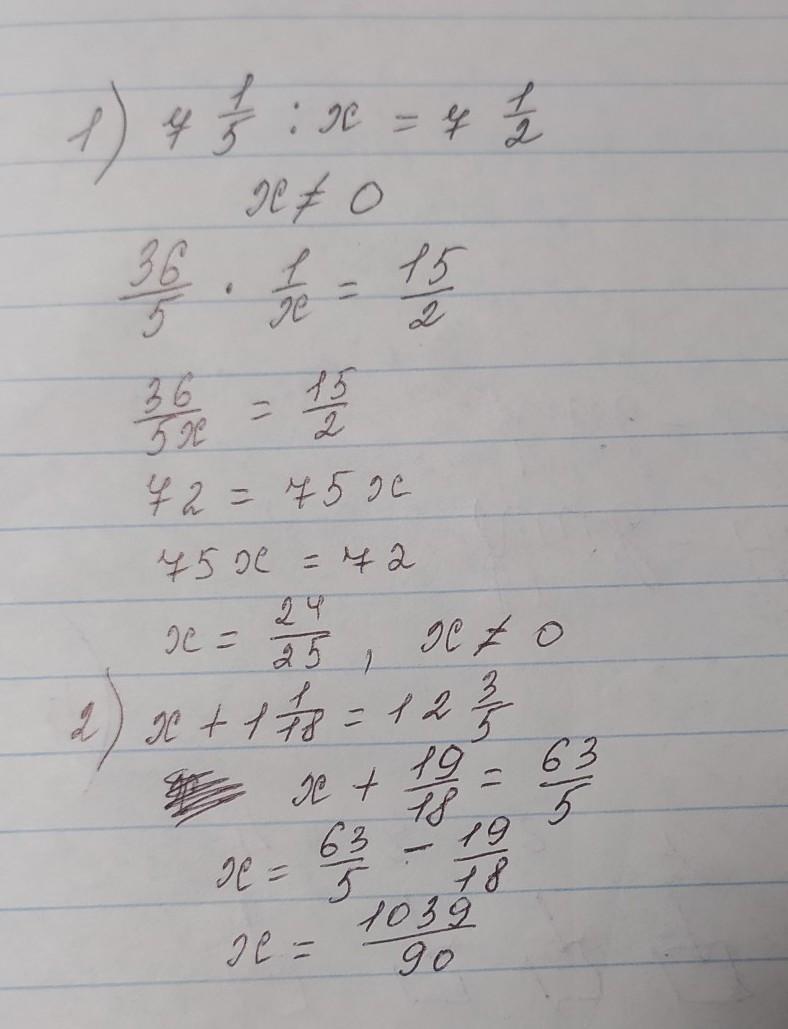 1) 7 1/5 : x = 7 1/2
x ≠ 0
36/5 · 1/x = 15/2
36/5x = 15/2
72 = 75x
75x = 72
x = 24/25, x ≠ 0
2) x + 1 1/18 = 12 3/5
x + 19/18 = 63/5
x = 63/5 - 19/18
x = 1039/90